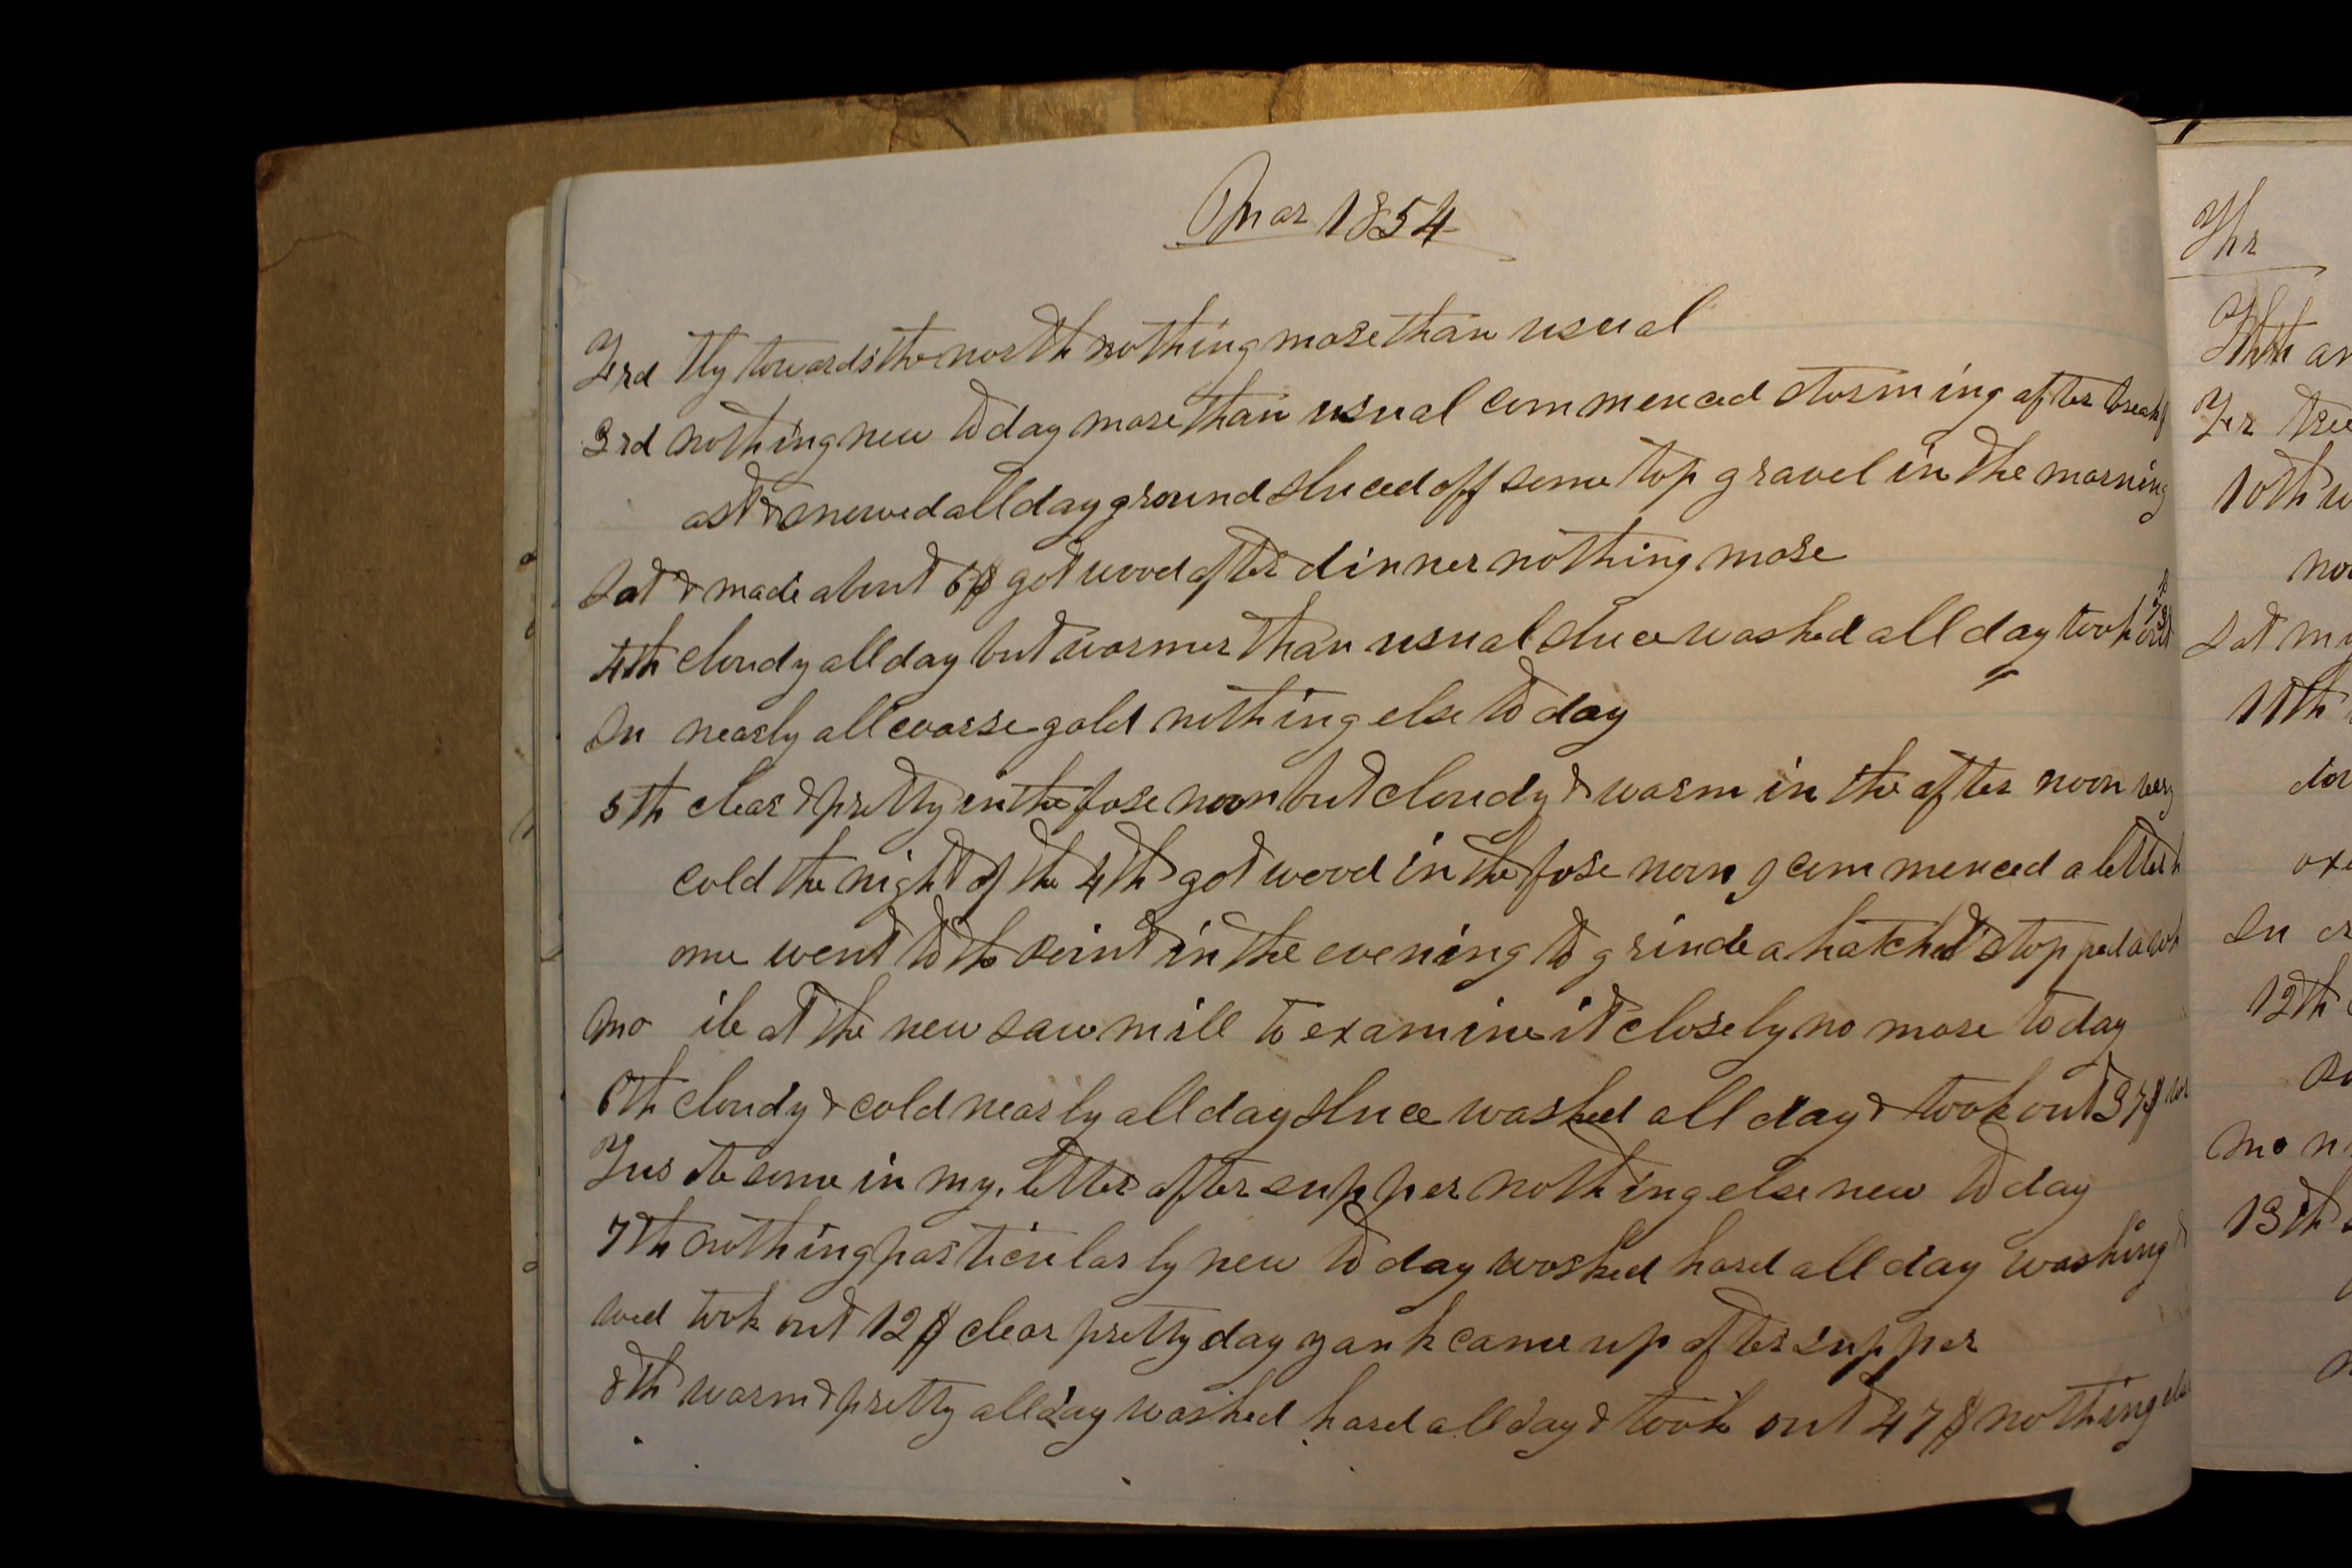 Mar 1854
Frd tly towards the north nothing more than usual
3rd nothing new to day more than usual commenced storming after breakf
ast & snowed all day ground sluced off some top gravel in the morning
Sat & made about 6$ got wood after dinner nothing more
4th cloudy all day but warmer than usual sluce washed all day took out
Su nearly all coarse gold nothing else to day
5th clear & pretty in the fore noon but cloudy & warm in the after noon very
cold the night of the 4th got wood in the fore noon I commenced a letter h
ome went to the point in the evening to grinde a hatchet stopped a wh
Mo ile at the new saw mill to examine it closely no more to day
6th cloudy & cold nearly all day sluce washed all day & took out 37$ wr
Tus ote some in my letter after supper nothing else new to day
7th nothing particularly new to day worked hard all day washing &
wed took out 12$ clear pretty day yank came up after supper
8th warm & pretty all day washed hard all day & took out 47$ nothing else
Thr
Thr
Fr
10th
Sat
11th
Su
12th
Mo
13th